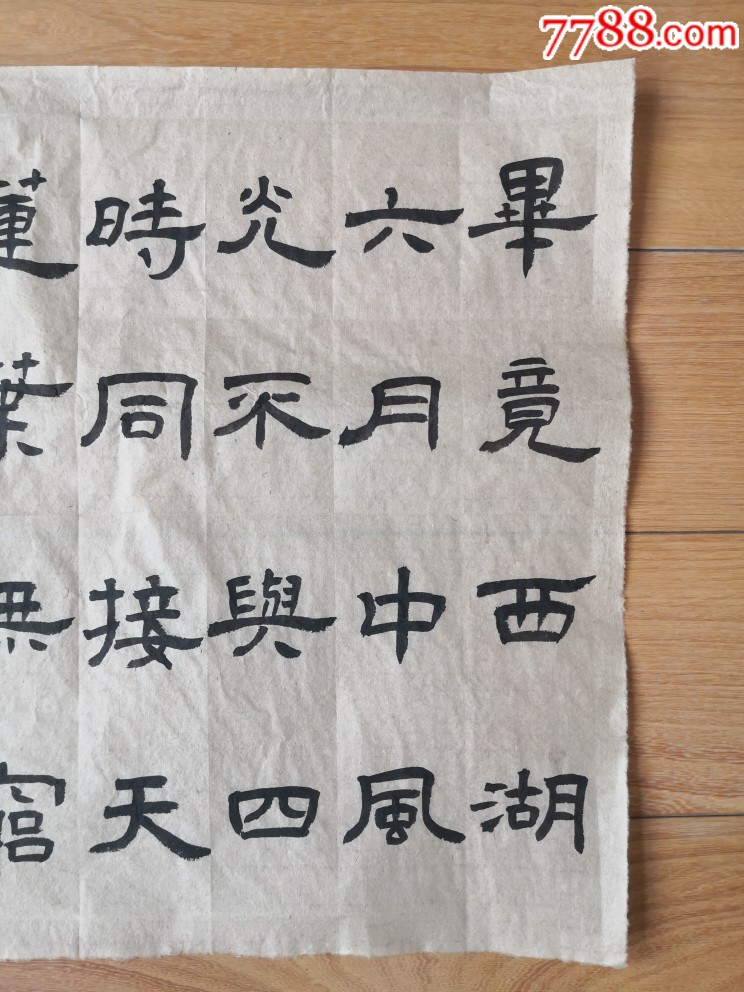 7788.com
畢竟西湖
六月中風
光不與四
時同接天
蓮葉無窮